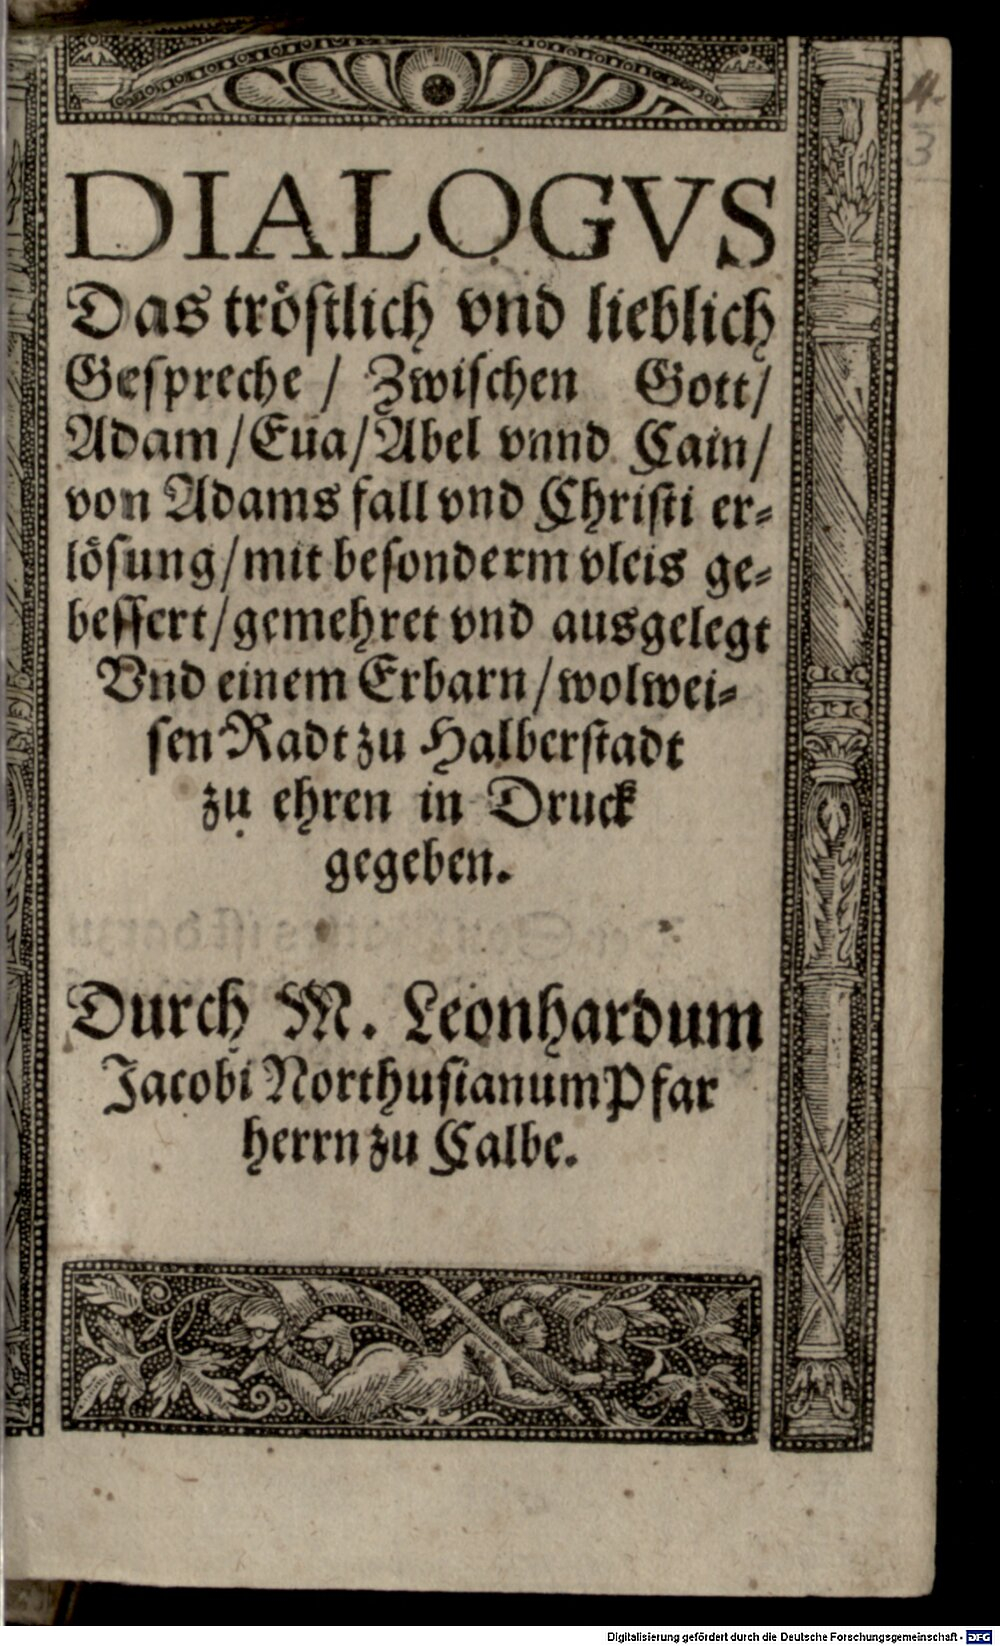 4.
3
DIALOGVS
Das tröstlich vnd lieblich
Gespreche / Zwischen Gott/
Adam/Eua/Abel vnnd Cain/
von Adams fall vnd Christi er-
lösung/mit besonderm vleis ge-
bessert/gemehret vnd ausgelegt
Vnd einem Erbarn/wolwei-
sen Radt zu Halberstadt
zu ehren in Druck
gegeben.
Durch M. Leonhardum
Jacobi Northusianum Pfar
herrn zu Calbe.
Digitalisierung gefördert durch die Deutsche Forschungsgemeinschaft - DFG